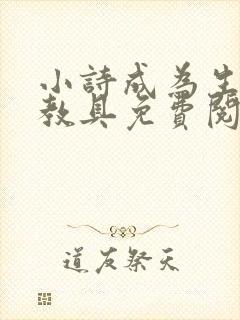 小詩成為生
教具免費閱
道友祭天